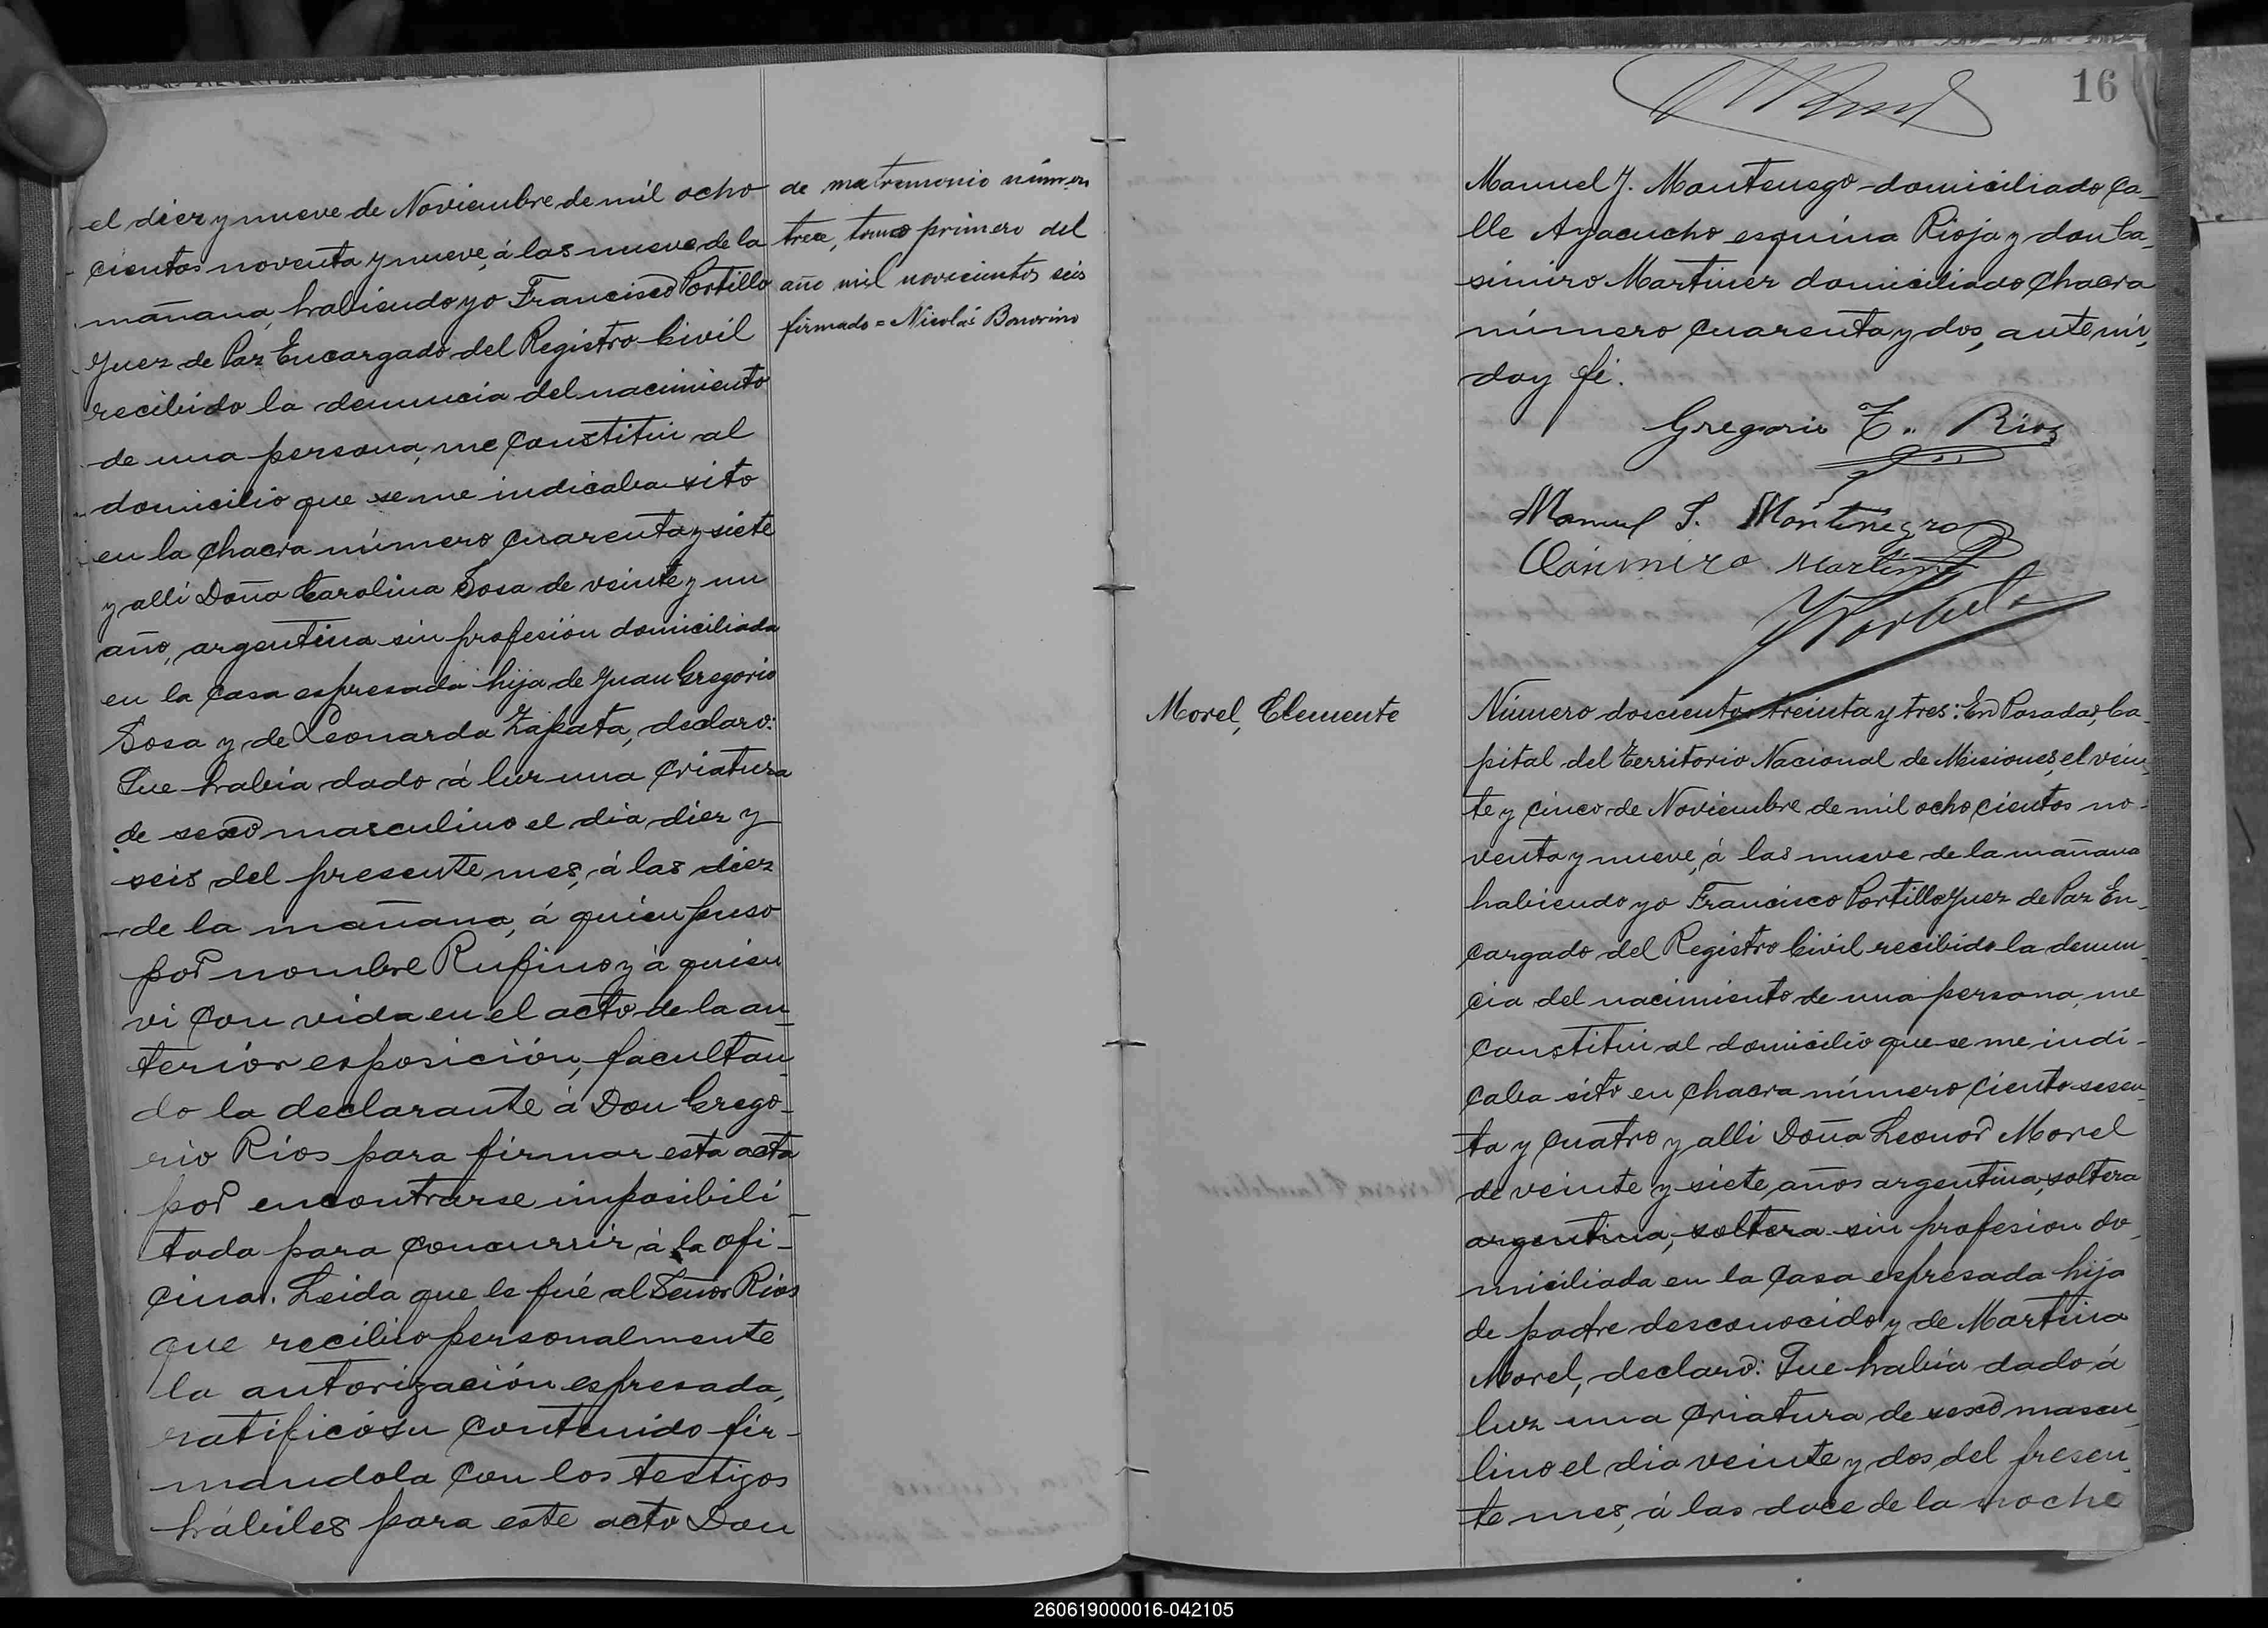 el diez y nueve de Noviembre de mil ocho
cientos noventa y nueve, á las nueve de la
mañana, habiendo yo Francisco Portillo
Juez de Paz Encargado del Registro Civil
recibido la denuncia del nacimiento
de una persona, me constitui al
domicilio que se me indicaba sito
en la chacra número cuarenta y siete
y alli Doña Carolina Sosa de veinte y un
año, argentina sin profesión domiciliada
en la casa espresada hija de Juan Gregorio
Sosa y de Leonarda Zapata, declaró:
Que habia dado á luz una criatura
de sexo masculino el dia diez y
seis del presente mes, á las diez
de la mañana, á quien puso
por nombre Rufino y á quien
vi con vida en el acto de la an-
terior esposición, facultan-
do la declarante á Don Grego-
rio Rios para firmar esta acta
por encontrarse imposibili-
tada para concurrir á la ofi-
cina. Leida que le fué al Señor Rios
que recibió personalmente
la autorización espresada,
ratificó su contenido fir-
mandola con los testigos
hábiles para este acto Don
de matrimonio número
trece, tomo primero del
año mil novecientos seis
firmado = Nicolás Bonorino
16
Manuel J. Montenego domiciliado ca-
lle Ayacucho esquina Rioja y don Ca-
simiro Martinez domiciliado chacra
número cuarenta y dos, ante mi,
doy fé.
Gregorio T. Rios
Manuel J. Montenegro
Casimiro Martinez
Morel, Clemente
Número doscientos treinta y tres: En Posadas, Ca-
pital del Territorio Nacional de Misiones, el vein-
te y cinco de Noviembre de mil ocho cientos no-
venta y nueve, á las nueve de la mañana
habiendo yo Francisco Portillo Juez de Paz En-
cargado del Registro Civil recibido la denun-
cia del nacimiento de una persona, me
constitui al domicilio que se me indi-
caba sito en chacra número ciento sesen-
ta y cuatro y alli Doña Leonor Morel
de veinte y siete años argentina, soltera
argentina, soltera sin profesion do-
miciliada en la casa espresada hija
de padre desconocido y de Martina
Morel, declaró: Que habia dado á
luz una criatura de sexo mascu-
lino el dia veinte y dos del presen-
te mes, á las doce de la noche
260619000016-042105